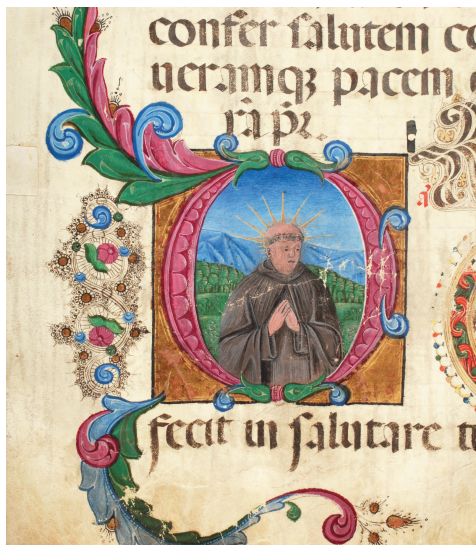 confer salutem
ueramqꝫ pacem
rā pr̄.
a
fecit in salutare